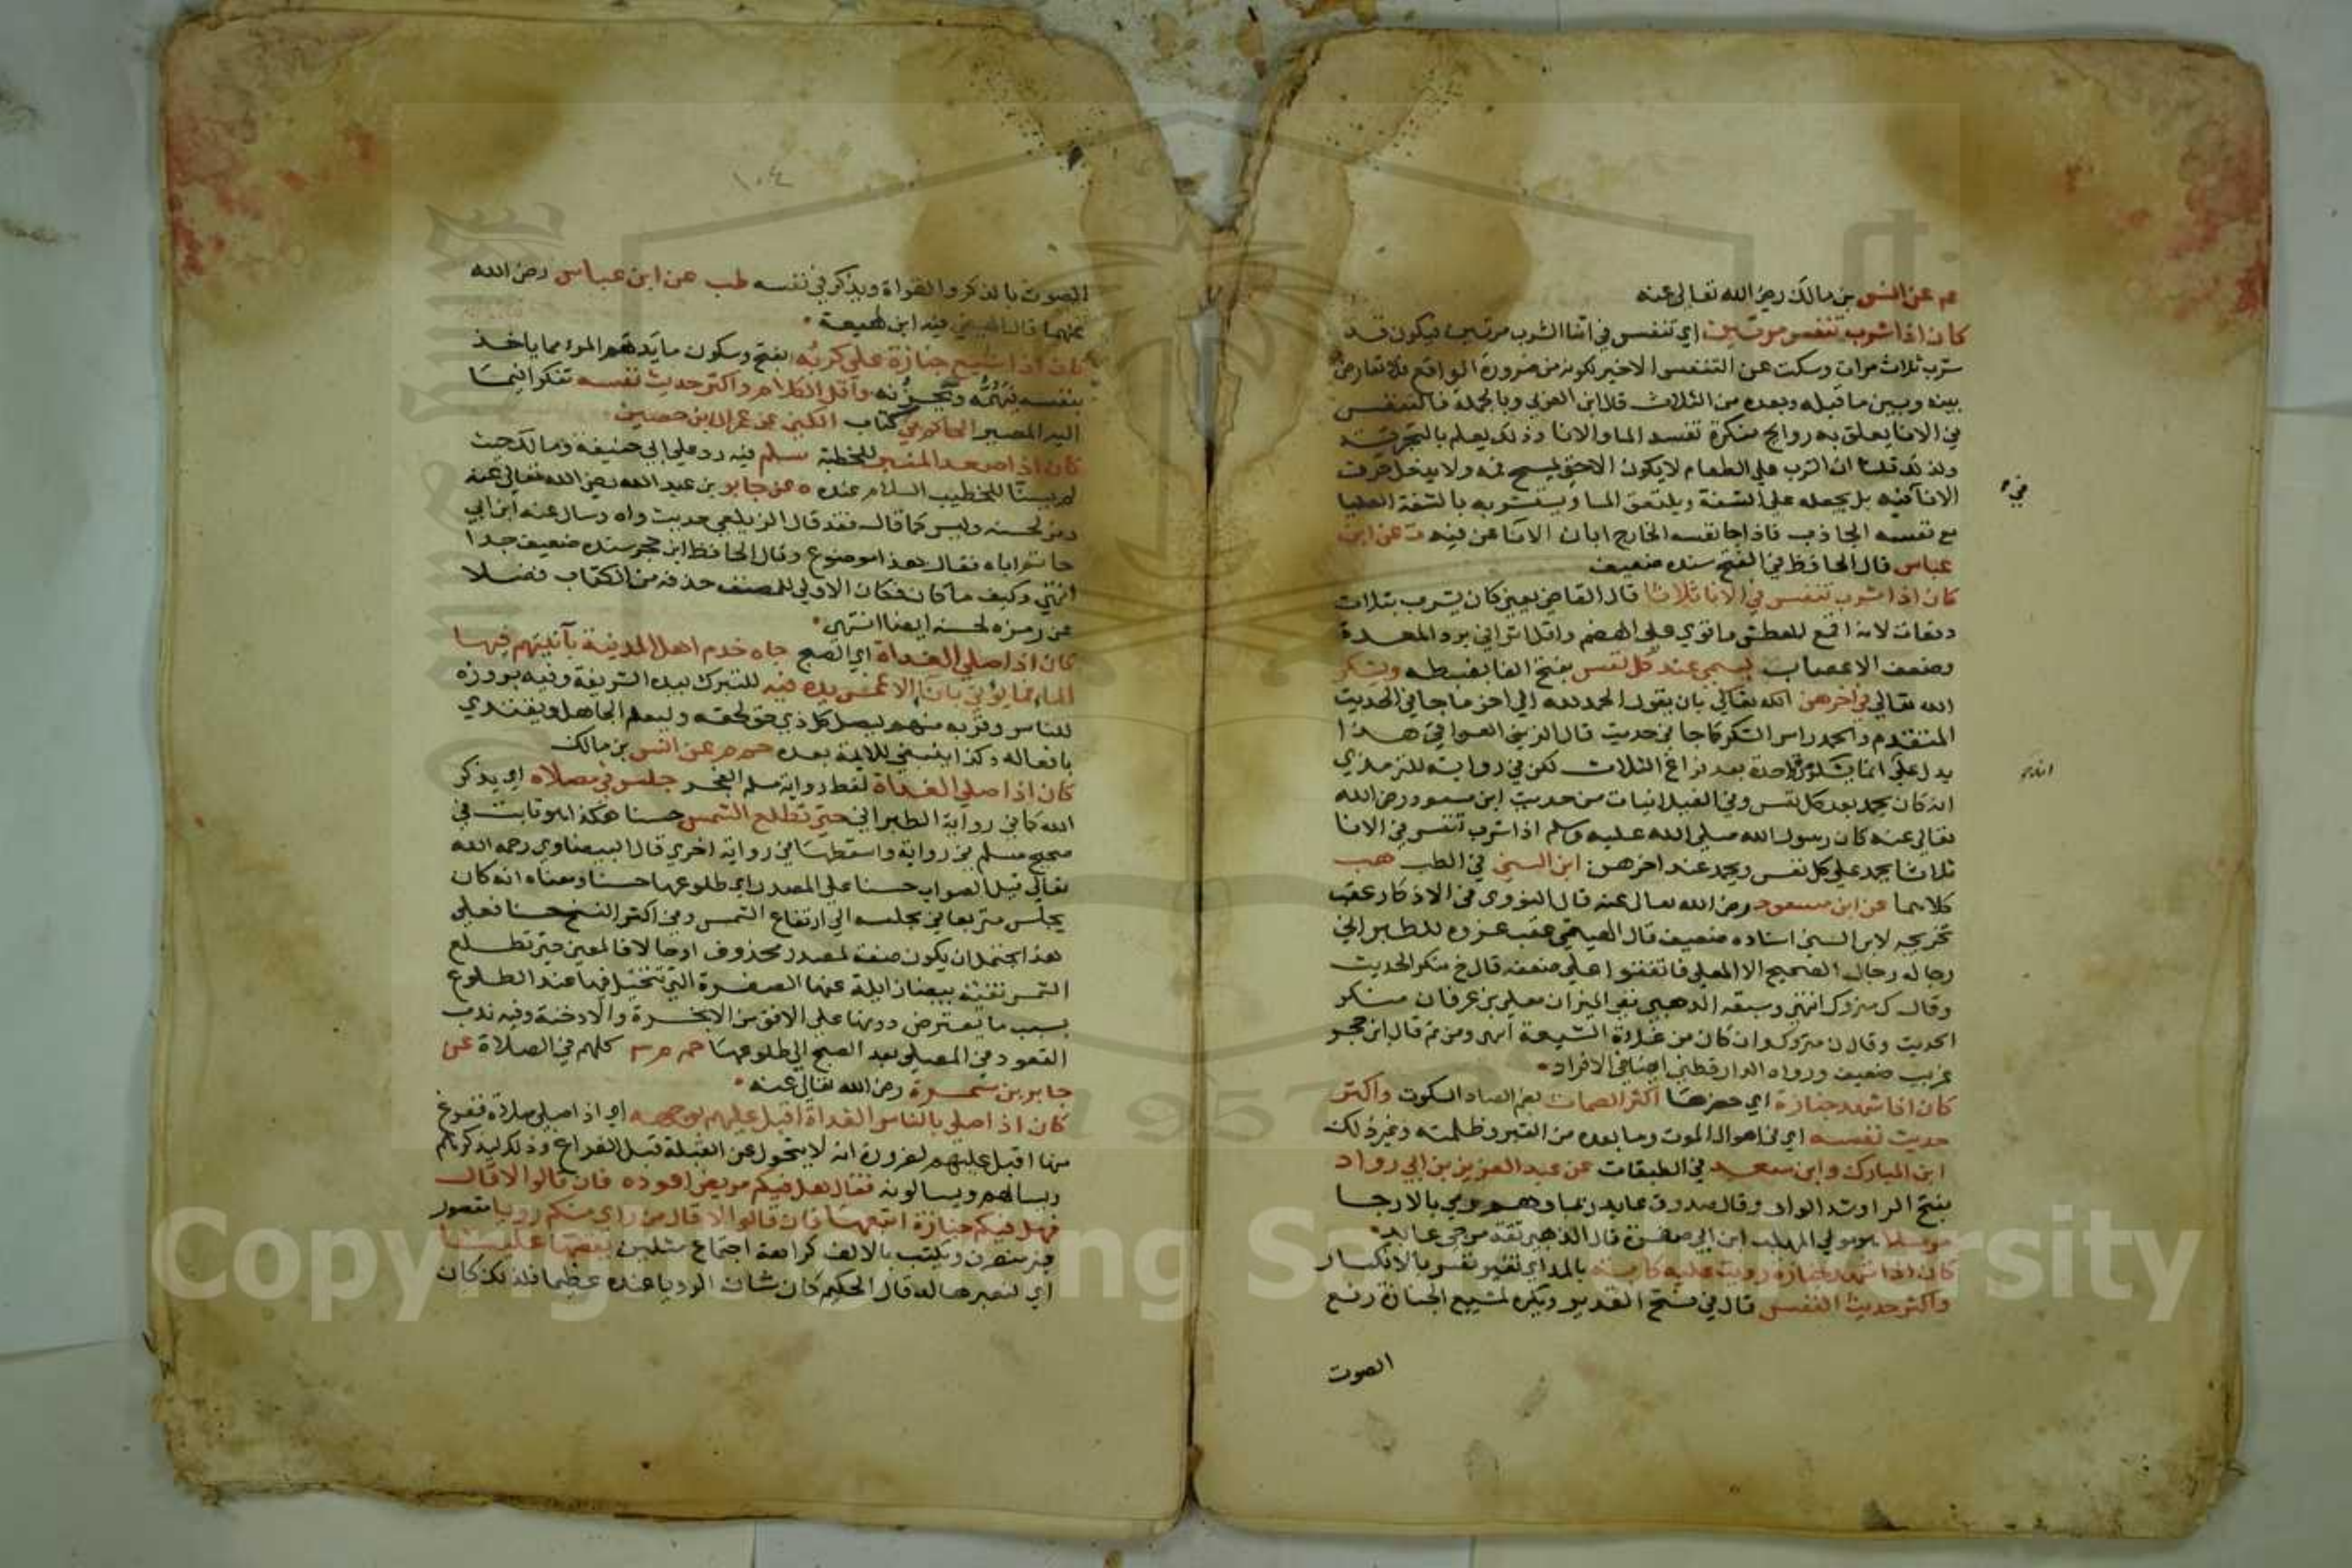 عم عن انس بن مالك رضي الله تعالى عنه
كان اذا شرب تنفس مرتين اي تنفس في اثنا الشرب مرتين فيكون قد
شرب ثلاث مرات وسكت عن التنفس الاخير لكونه من ضرورة الواقع فلا تعارض
بينه وبين ما قبله وبعده من الثلاث قال ابن العربي وبالجملة فالتنفس
في الانا يعلق به روايح منكرة تفسد الما والانا وذلك يعلم بالتجربة
ولذلك قلنا ان الشرب على الطعام لا يكون الا حتى يمسح فمه ولا يدخل حرف
الانا فيه بل يجعله على الشفة ويلتعق الما ويشربه بالشفة العليا
مع نفسه الجاذب فاذا جا نفسه الخارج ابان الانا عن فيه ت عن ابن
عباس قال الحافظ في الفتح سنده ضعيف
كان اذا شرب تنفس في الانا ثلاثا قال القاضي يعني كان يشرب بثلاث
دفعات لانه اقمع للعطش واقوي على الهضم واقل اثرا في برد المعدة
وضعف الاعصاب يسمي عند كل نفس بفتح الفا بضبطه ويشكر
الله تعالى في اخرهن الله تعالى بان يقول الحمد لله الى اخر ما جا في الحديث
المتقدم والحمد راس الشكر كما جا في حديث قال الزين العراقي هذا
يدل على انما يشكر مرة واحدة بعد فراغ الثلاث لكن في رواية للترمذي
انه كان يحمد بعد كل نفس وفي الغيلانيات من حديث ابن مسعود رضي الله
تعالى عنه كان رسول الله صلى الله عليه وسلم اذا شرب تنفس في الانا
ثلاثا يحمد على كل نفس ويحمد عند اخرهن ابن السني في الطب هب
كلاهما عن ابن مسعود رضي الله تعالى عنه قال النووي في الاذكار عقب
تخريجه لابن السني اسناده ضعيف قال الهيثمي عقب عزوه للطبراني
رجاله رجال الصحيح الا المعلى فاتفقوا على ضعفه قال خ منكر الحديث
وقال ك متروك انتهى وسبقه الذهبي ففي الميزان معلى بن عرفان منكر
الحديث وقال ن متروك وان كان من غلاة الشيعة انتهى ومن ثم قال ابن حجر
غريب ضعيف ورواه الدارقطني ايضا في الافراد
كان اذا شهد جنازة اي حضرها اكثر الصمات بضم الصاد السكوت واكثر
حديث نفسه اي في اهوال الموت وما بعده من القبر وظلمته وغير ذلك
ابن المبارك وابن سعد في الطبقات عن عبد العزيز بن ابي رواد
بفتح الرا وشد الواو وقال صدوق عابد ربما وهم رمي بالارجا
مرسلا هو مولي المهلب ابن ابي صفرة قال الذهبي ثقة مرجي عابد
كان اذا شهد جنازة رويت عليه كابة بالمد اي تغير نفس بالانكسار
واكثر حديث النفس قال في فتح القدير ويكره لمشيع الجنازة رفع
الصوت
في
انتهى
١٠٤
الصوت بالذكر والقراة ويذكر في نفسه طب عن ابن عباس رضي الله
عنهما قال الهيثمي فيه ابن لهيعة
كان اذا شيع جنازة علي كربه بفتح وسكون ما يدهم المرء مما ياخذ
بنفسه فيغمه ويحزنه واقل الكلام واكثر حديث نفسه تفكرا فيما
اليه المصير الحاكم في كتاب الكنى عن عمران بن حصين
كان اذا صعد المنبر للخطبة سلم فيه رد على ابي حنيفة ومالك حيث
لم يسنا للخطيب السلام عنده ه عن جابر بن عبد الله رضي الله تعالى عنه
رمز لحسنه وليس كما قال فقد قال الزيلعي حديث واه وسال عنه ابن ابي
حاتم اباه فقال هذا موضوع وقال الحافظ ابن حجر سنده ضعيف جدا
انتهى وكيف ما كان فكان الاولي للمصنف حذفه من الكتاب فضلا
عن رمزه لحسنه ايضا انتهى
كان اذا صلي الغداة اي الصبح جاه خدم اهل المدينة بآنيتهم فيها
الماء فما يؤتي بانا الا غمس يده فيه للتبرك بيده الشريفة وفيه بروزه
للناس وقربه منهم ليصل كل ذي حق لحقه وليعلم الجاهل ويقتدي
بافعاله وكذا ينبغي للائمة بعده حم م عن انس بن مالك
كان اذا صلي الغداة لفظ رواية مسلم الفجر جلس في مصلاه اي يذكر
الله كما في رواية الطبراني حتى تطلع الشمس حسنا هكذا هو ثابت في
صحيح مسلم في رواية واسقطها في رواية اخري قال البيضاوي رحمه الله
تعالى قيل الصواب حسنا على المصدر اي طلوعها حسنا ومعناه انه كان
يجلس متربعا في مجلسه الي ارتفاع الشمس وفي اكثر النسخ حسنا فعلي
هذا يحتمل ان يكون صفة لمصدر محذوف او حالا فالمعني حتى تطلع
الشمس نقية بيضا زايلة عنها الصفرة التي تتخيل فيها عند الطلوع
بسبب ما يعترض دونها على الافق من الابخرة والادخنة وفيه ندب
القعود في المصلي بعد الصبح الي طلوعها حم م ٣ كلهم في الصلاة عن
جابر بن سمرة رضي الله تعالى عنه
كان اذا صلي بالناس الغداة اقبل عليهم بوجهه اي اذا صلي صلاة ففرغ
منها اقبل عليهم لضرورة انه لا يتحول عن القبلة قبل الفراغ وذلك ليذكرهم
ويسالهم ويسالونه فقال هل فيكم مريض اعوده فان قالوا لا قال
فهل فيكم جنازة اتبعها فان قالوا لا قال من راي منكم رويا مقصور
غير منصرف ويكتب بالالف كراهة اجتماع مثلين يقصها علينا
اي لنعبرها له قال الحكيم كان شان الرويا عنده عظيما فلذلك كان